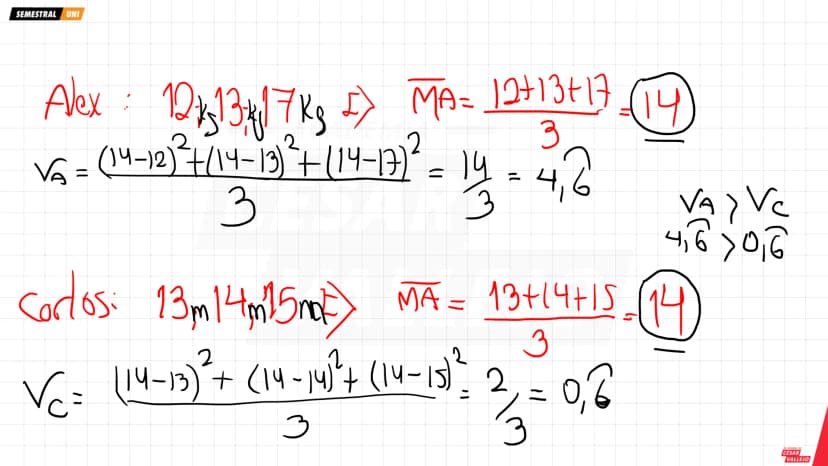 SEMESTRAL UNI
Alex : 12kg 13kg 17kg ⇒ MA = (12+13+17)/3 = 14
V_A = ((14-12)²+(14-13)²+(14-17)²)/3 = 14/3 = 4,6̂
V_A > V_C
4,6̂ > 0,6̂
Carlos: 13m 14m 15m ⇒ MA = (13+14+15)/3 = 14
V_C = ((14-13)² + (14-14)² + (14-15)²)/3 = 2/3 = 0,6̂
CESAR
VALLEJO